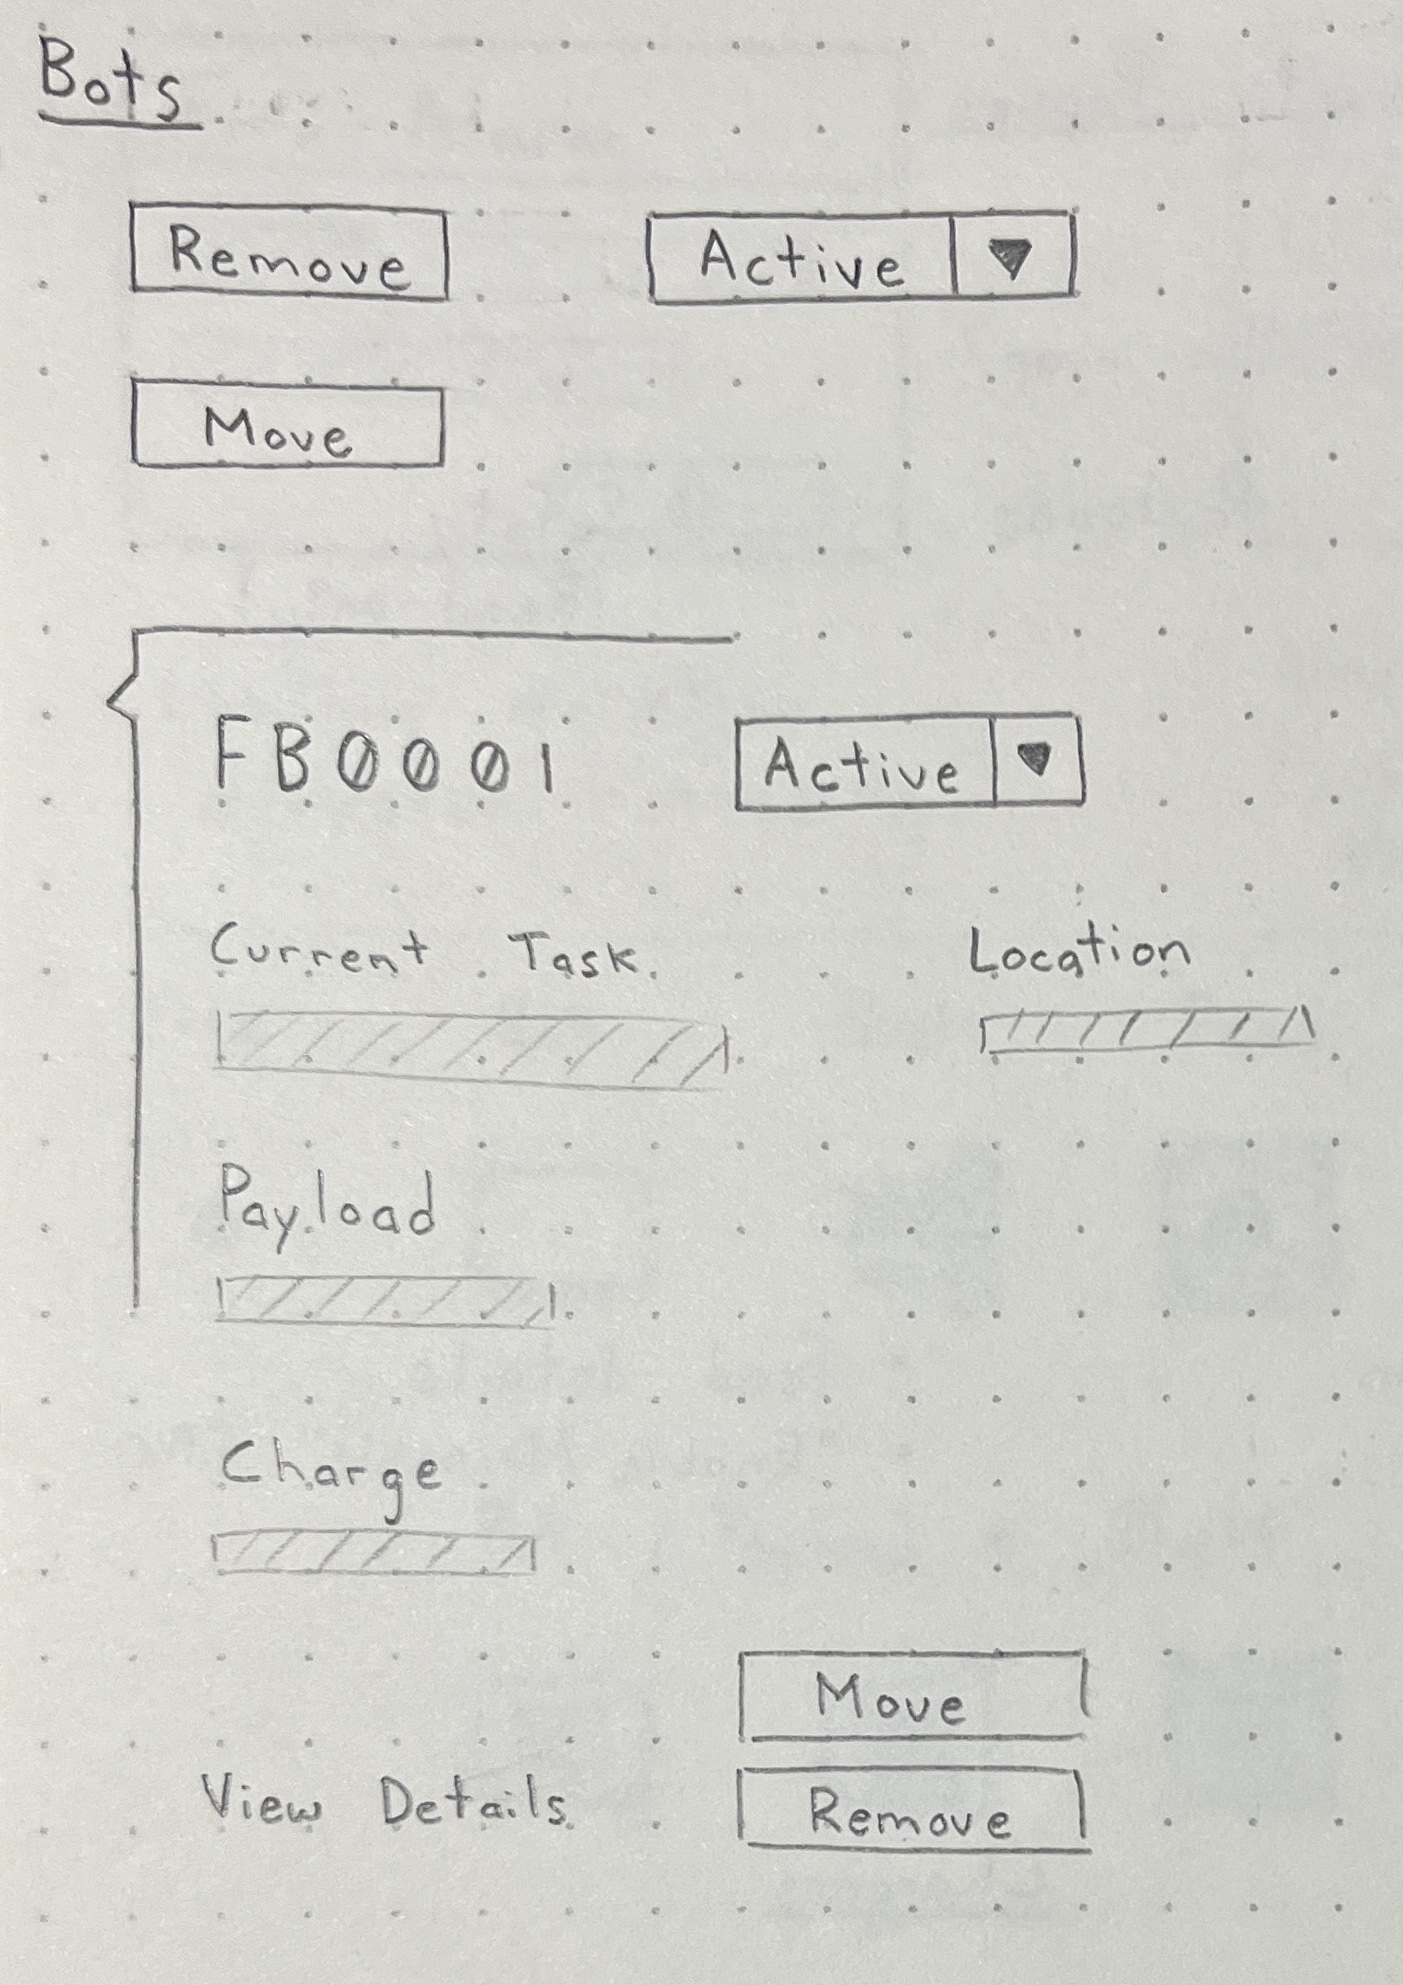 Bots
Remove Active
Move
FB0001 Active
Current Task Location
Payload
Charge
Move
View Details
Remove